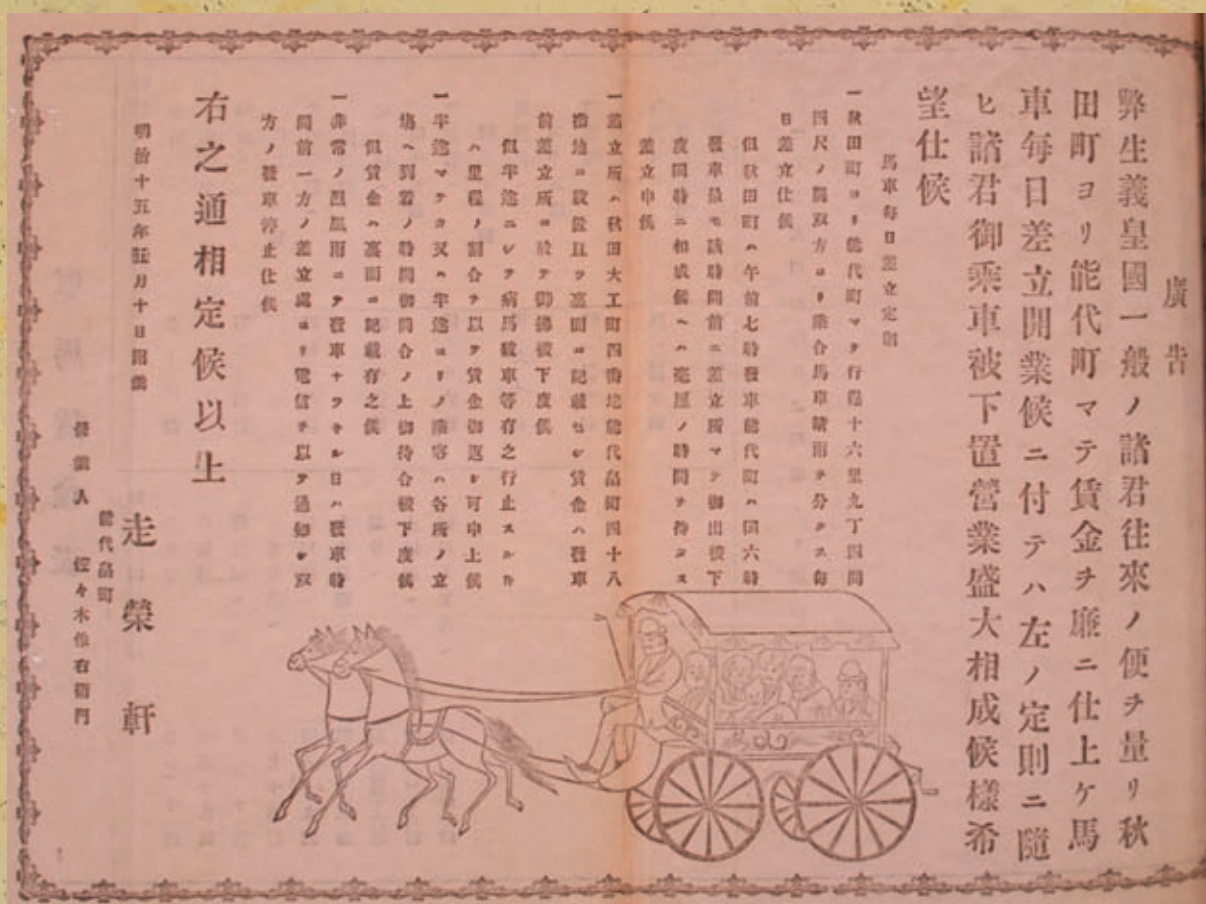 廣告
弊生義皇國一般ノ諸君往來ノ便チ量リ秋
田町ヨリ能代町マテ賃金チ廉ニ仕上ケ馬
車每日差立開業候ニ付テハ左ノ定則ニ隨
ヒ諸君御乘車被下置營業盛大相成候樣希
望仕候
馬車每日差立定則
一秋田町ヨリ能代町マテ行程十六里九丁四間
四尺ノ間双方ヨリ乘合馬車晴雨ヲ分タス每
日差立仕候
但秋田町ハ午前七時發車能代町ハ同六時
發車最モ該時間前ニ差立所マテ御出被下
度同時ニ相成候ヘハ遲屋ノ時間ヲ待タス
差立申候
一差立所ハ秋田大工町四番地能代畠町四十八
番地ニ設置且ツ裏面ニ記載セシ賃金ハ發車
前差立所ニ於テ御拂被下度候
但半途ニシテ病馬破車等有之行止スルトキ
ハ里程ノ割合ヲ以テ賃金御返シ可申上候
一半途マテカ又ハ半途ヨリノ乘客ハ各所ノ立
場ヘ到着ノ時間御問合ノ上御待合被下度候
但賃金ハ裏面ニ記載有之候
一非常ノ烈風雨ニテ發車ナラサル日ハ發車時
間前一方ノ差立處ヨリ電信ヲ以テ通知シ双
方ノ發車停止仕候
右之通相定候以上
明治十五年 月十日開業
能代畠町
走榮軒
營業人 々木 右衛門